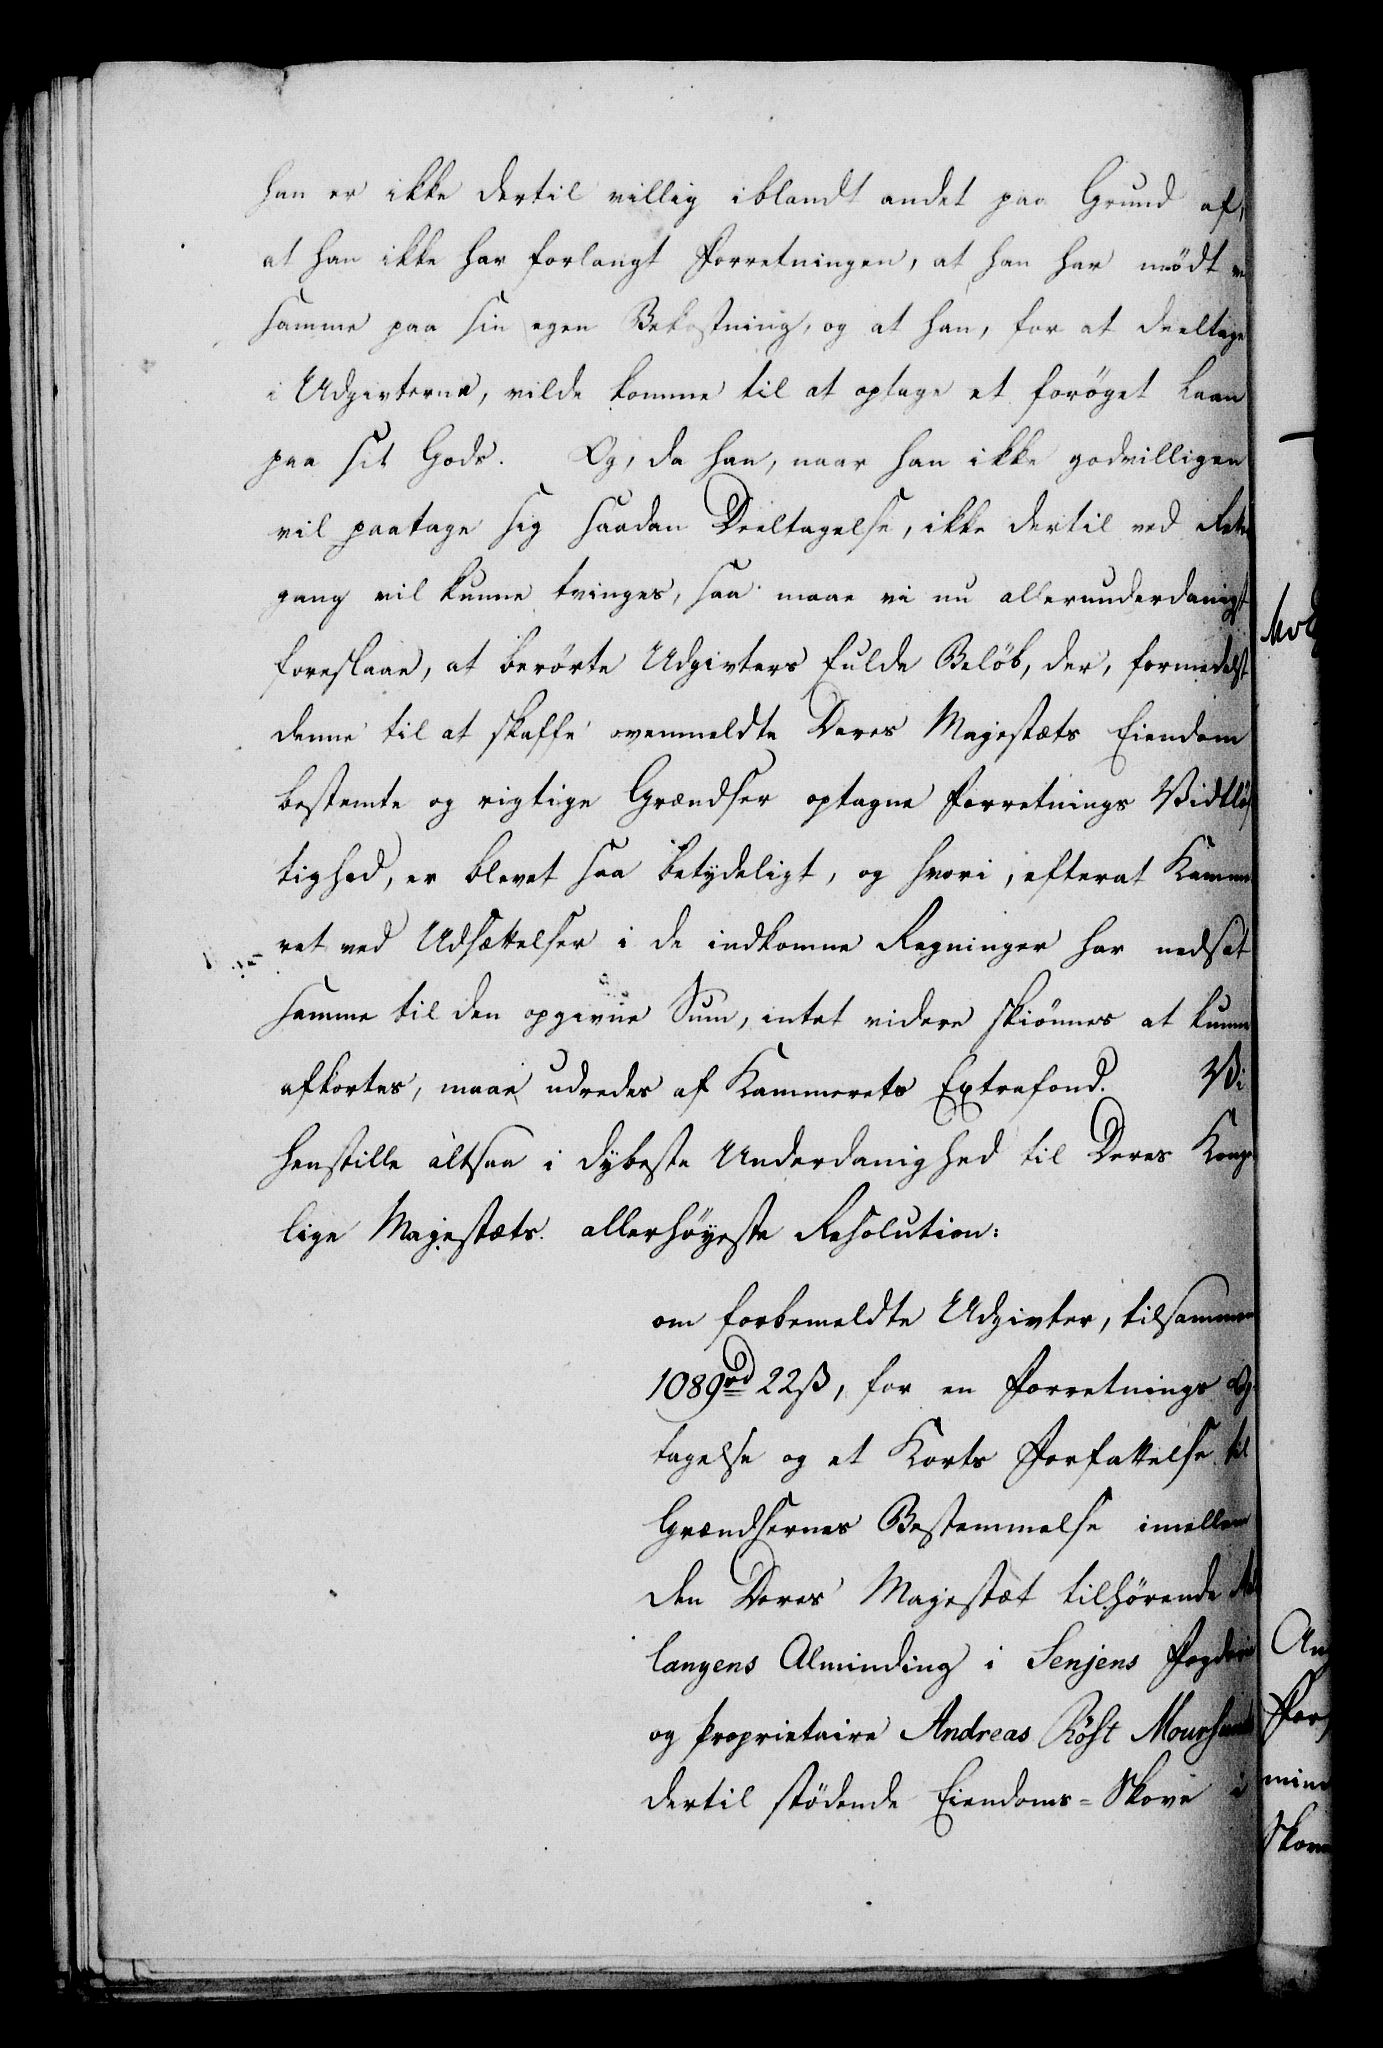 han er ikke dertil villig iblandt andet paa Grund af,
at han ikke har forlangt Forretningen, at han har mödt
samme paa sin egen Bekostning, og at han, for at deeltage
i Udgivterne, vilde komme til at optage et foröget Laan
paa sit Gods. Og, da han, naar han ikke godvilligen
vil paatage sig saadan Deeltagelse, ikke dertil ved Rette
gang vil kunne tvinges, saa maae vi nu allerunderdanigst
foreslaae, at berörte Udgivters fulde Belöb, der, formedelst
denne til at skaffe ovenmeldte Deres Majestæts Eiendom
bestemte og rigtige Grændser optagne Forretnings Vidtlöf
tighed, er blevet saa betydeligt, og hvori, efterat Kamme
ret ved Udsættelser i de indkomne Regninger har nedsat
samme til den opgivne Sum, intet videre skiönnes at kunne
afkortes, maae udredes af Kammerets Extrafond. Vi
henstille altsaa i dybeste Underdanighed til Deres Konge
lige Majestæts allerhöyeste Resolution:
om forbemeldte Udgivter, tilsammen
1089rd 22ß, for en Forretnings Op
tagelse og et Korts Forfattelse til
Grændsernes Bestemmelse imellem
den Deres Majestæt tilhörende Ma
langens Alminding i Senjens Fogderie
og Proprietaire Andreas Röst Moursunds
dertil stödende Eiendoms=Skove i